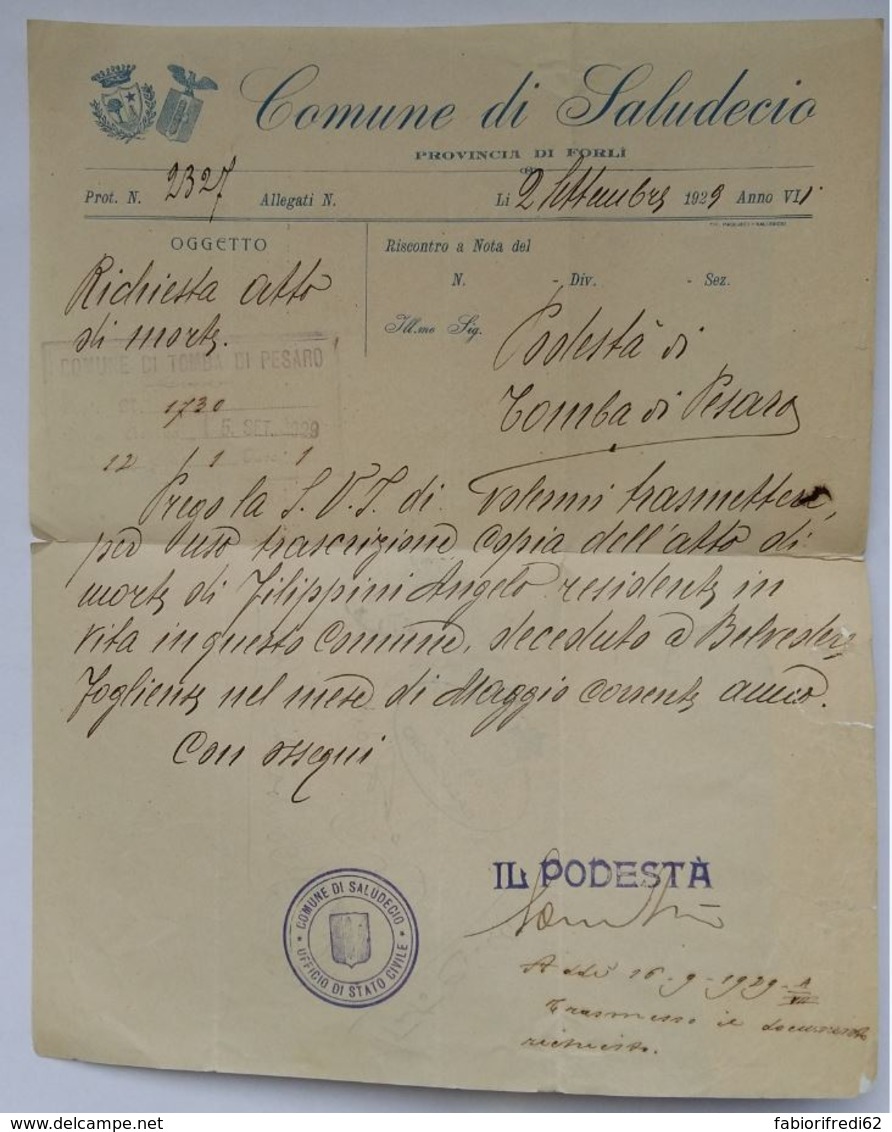 Comune di Saludecio
PROVINCIA DI FORLÌ
Prot. N. 2327 Allegati N. Li 2 Settembre 1929 Anno VII
OGGETTO
Richiesta atto
di morte.
Riscontro a Nota del
N. - Div. - Sez.
Ill.mo Sig. Podestà di
Tomba di Pesaro
COMUNE DI TOMBA DI PESARO
1730
5. SET. 1929
12 1 1
Prego la S. V. I. di volermi trasmettere,
per uso trascrizione copia dell'atto di
morte di Filippini Angelo residente in
vita in questo Comune, deceduto a Belvedere
Fogliense nel mese di Maggio corrente anno.
Con ossequi
IL PODESTÀ
COMUNE DI SALUDECIO
UFFICIO DI STATO CIVILE
Addì 16-9-1929 - A
VII
Trasmesso il documento
richiesto.
fabiorifredi62